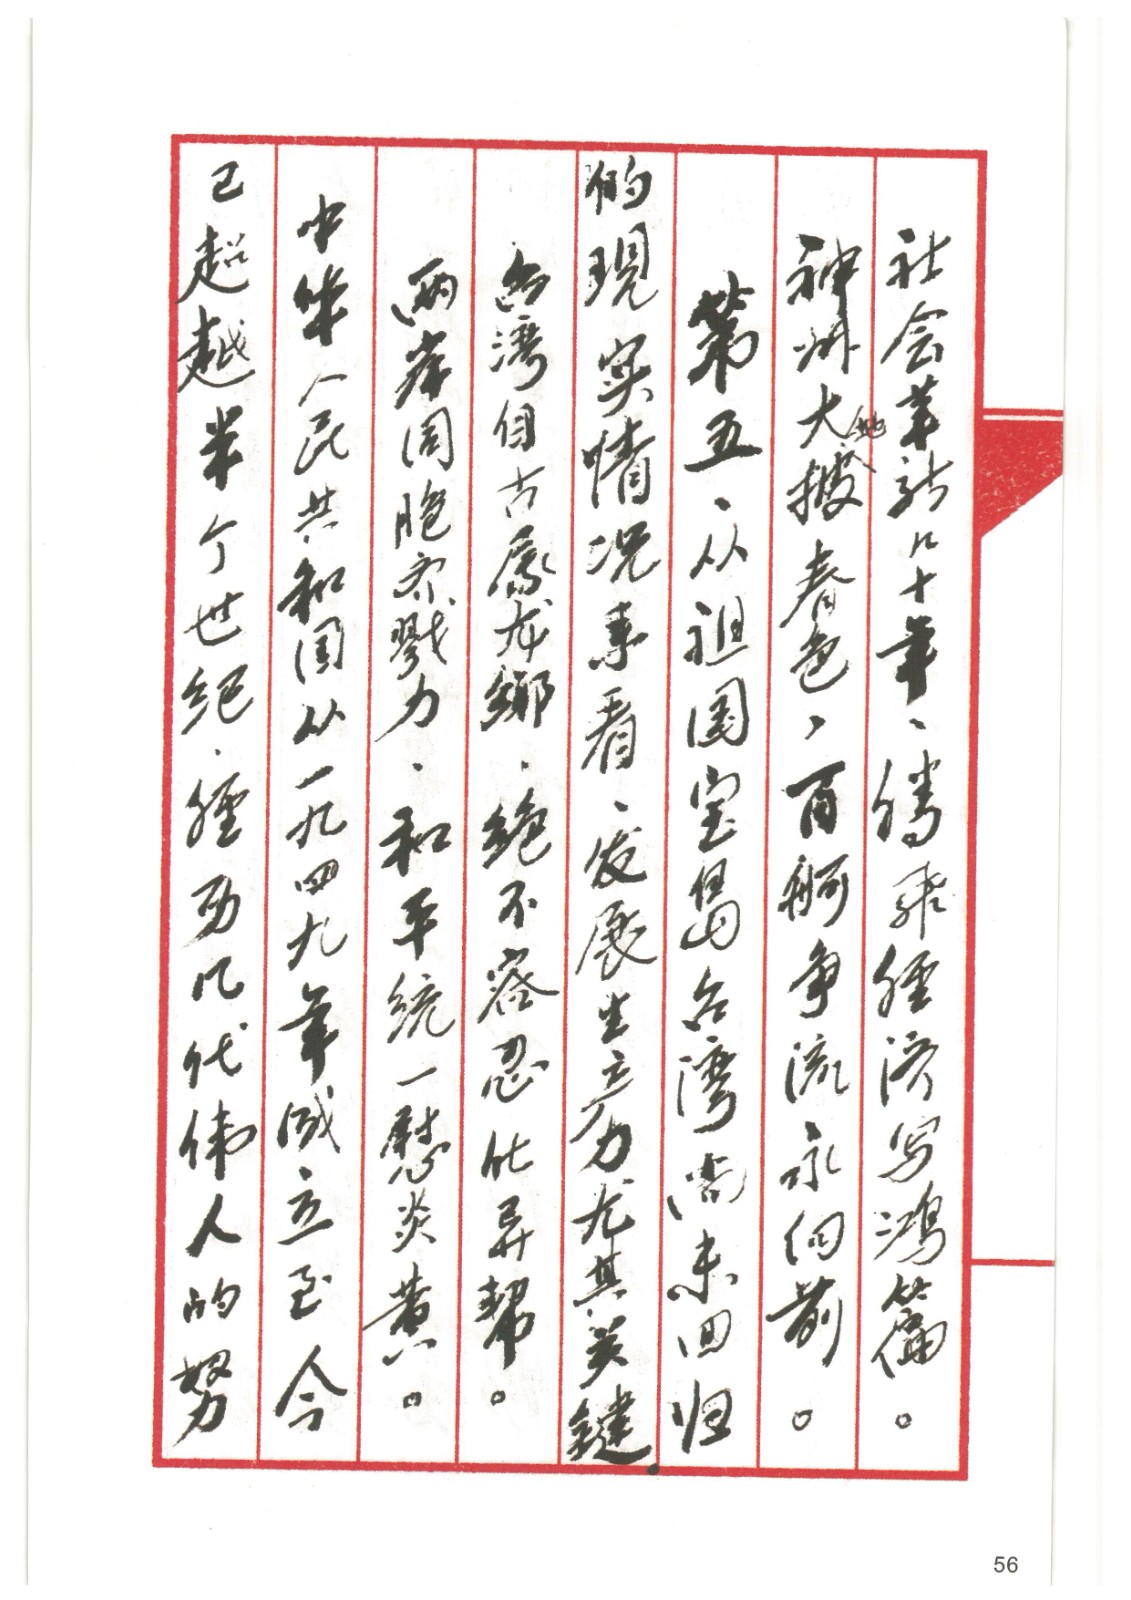 社会革新几十年、腾飛经济写鸿篇。
神州大地披春色、百舸争流永向前。
第五、从祖国宝岛台湾尚未回归
的現实情况来看、发展生产力尤其关键.
台湾自古属龙鄉.绝不容忍化异帮。
两岸同胞齐戮力.和平统一慰炎黄。
中华人民共和国从一九四九年成立至今
已超越半个世纪.经历几代伟人的努
56